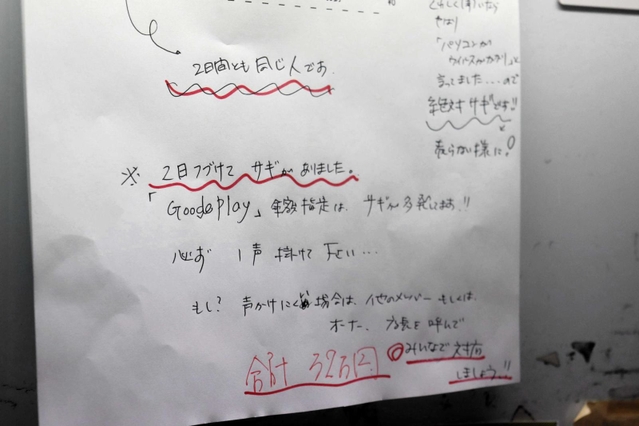 2日間とも同じ人です。
くわしく聞いたら
やはり
「パソコンが
ウイルスにかかり」と
言ってました…ので
絶対サギです!!
売らない様に!
※ 2日つづけて サギがありました。
「Goodeplay」金額指定は、サギが多発してます!!
必ず 1声 掛けて 下さい…
もし? 声かけにくい場合は、他のメンバー もしくは、
オーナー、店長を呼んで
◎みんなで対応
しましょう!!
合計 32万円